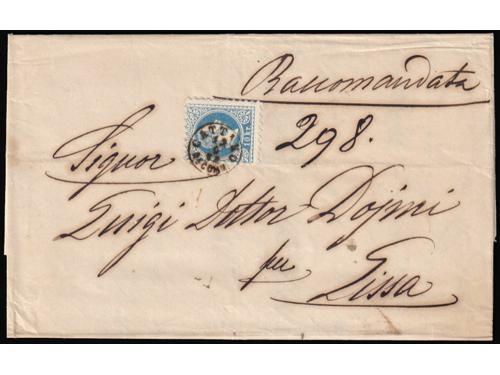 Raccomandata
298.
Signor
Luigi Dottor Dojmi
per
Lissa
10 kr.
CATTARO